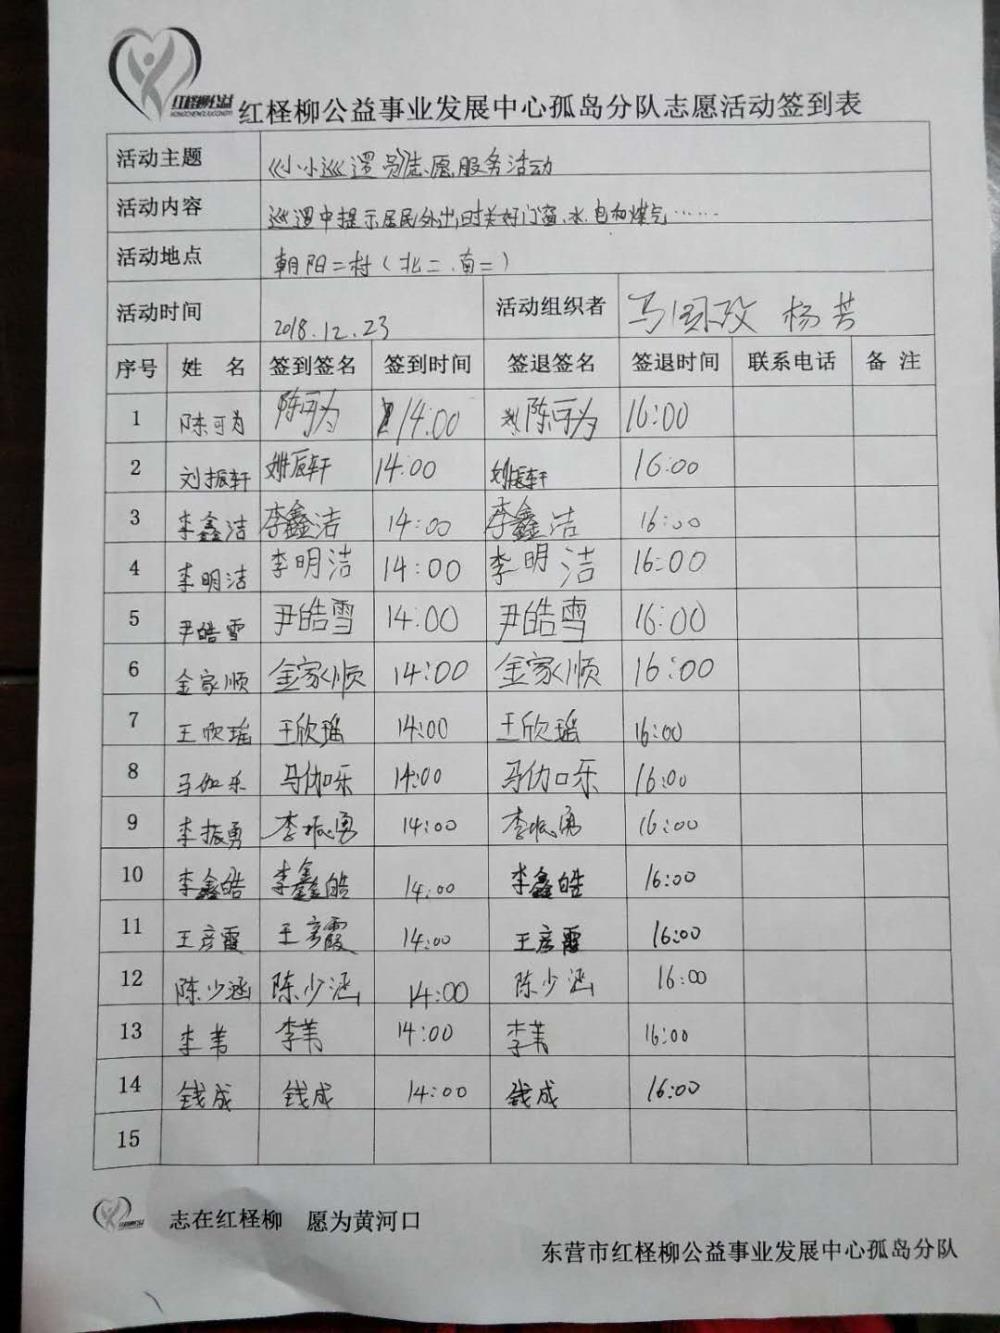 红柽柳公益
红柽柳公益事业发展中心孤岛分队志愿活动签到表
活动主题 《小小巡逻员》志愿服务活动
活动内容 巡逻中提示居民外出时关好门窗、水、电和煤气……
活动地点 朝阳二村（北二、南二）
活动时间 2018.12.23 活动组织者 马国玫 杨芳
序号 姓 名 签到签名 签到时间 签退签名 签退时间 联系电话 备 注
1 陈可为 陈可为 14:00 陈可为 16:00
2 刘振轩 14:00 16:00
3 李鑫洁 李鑫洁 14:00 李鑫洁 16:00
4 李明洁 李明洁 14:00 李明洁 16:00
5 尹皓雪 尹皓雪 14:00 尹皓雪 16:00
6 金家顺 金家顺 14:00 金家顺 16:00
7 王欣瑶 王欣瑶 14:00 王欣瑶 16:00
8 马伽乐 马伽乐 14:00 马伽乐 16:00
9 李振勇 李振勇 14:00 李振勇 16:00
10 李鑫皓 李鑫皓 14:00 李鑫皓 16:00
11 王彦霞 王彦霞 14:00 王彦霞 16:00
12 陈少涵 陈少涵 14:00 陈少涵 16:00
13 李苇 李苇 14:00 李苇 16:00
14 钱成 钱成 14:00 钱成 16:00
15
志在红柽柳 愿为黄河口
东营市红柽柳公益事业发展中心孤岛分队